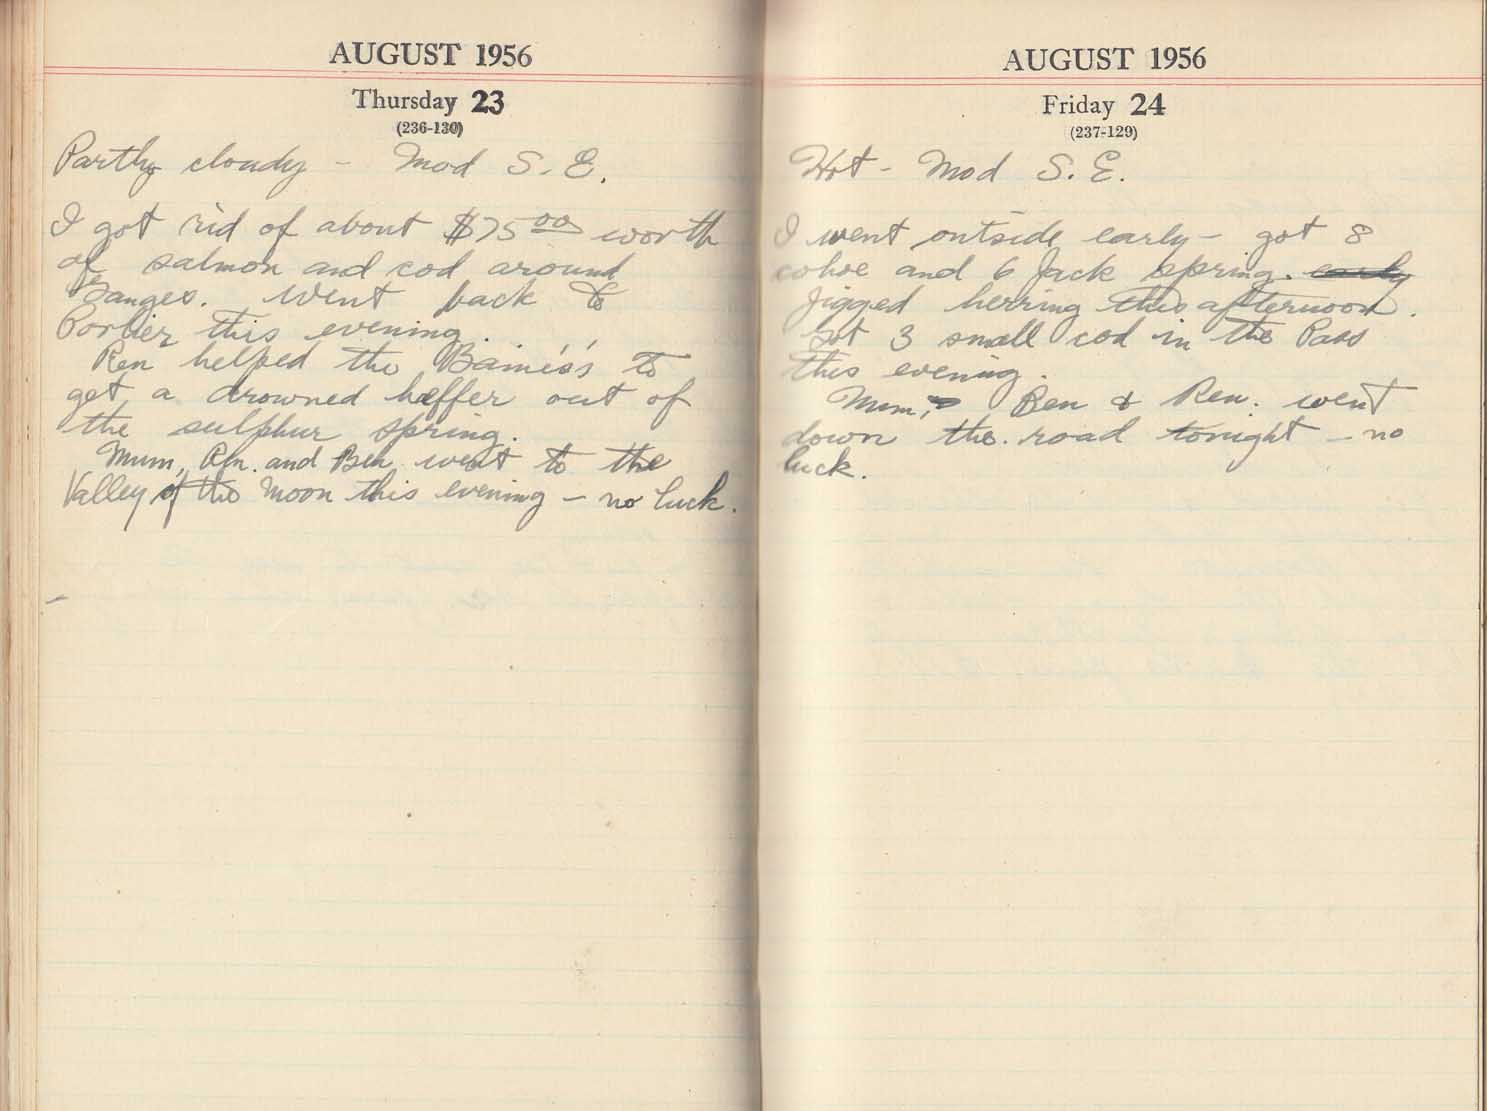 AUGUST 1956
Thursday 23
(236-130)
Partly cloudy - Mod S. E.
I got rid of about $75.00 worth
of salmon and cod around
Ganges. Went back to
Porlier this evening.
Ren helped the to
get a drowned heffer out of
the sulphur spring.
Mum, Ren. and Ben went to the
Valley of the Moon this evening - no luck.
AUGUST 1956
Friday 24
(237-129)
Hot - Mod S. E.
I went outside early - got 8
cohoe and 6 Jack spring. early
Jigged herring this afternoon.
Got 3 small cod in the Pass
this evening.
Mum, Ben & Ren. went
down the road tonight - no
luck.